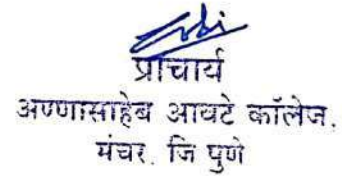 प्राचार्य
अण्णासाहेब आवटे कॉलेज.
मंचर. जि पुणे